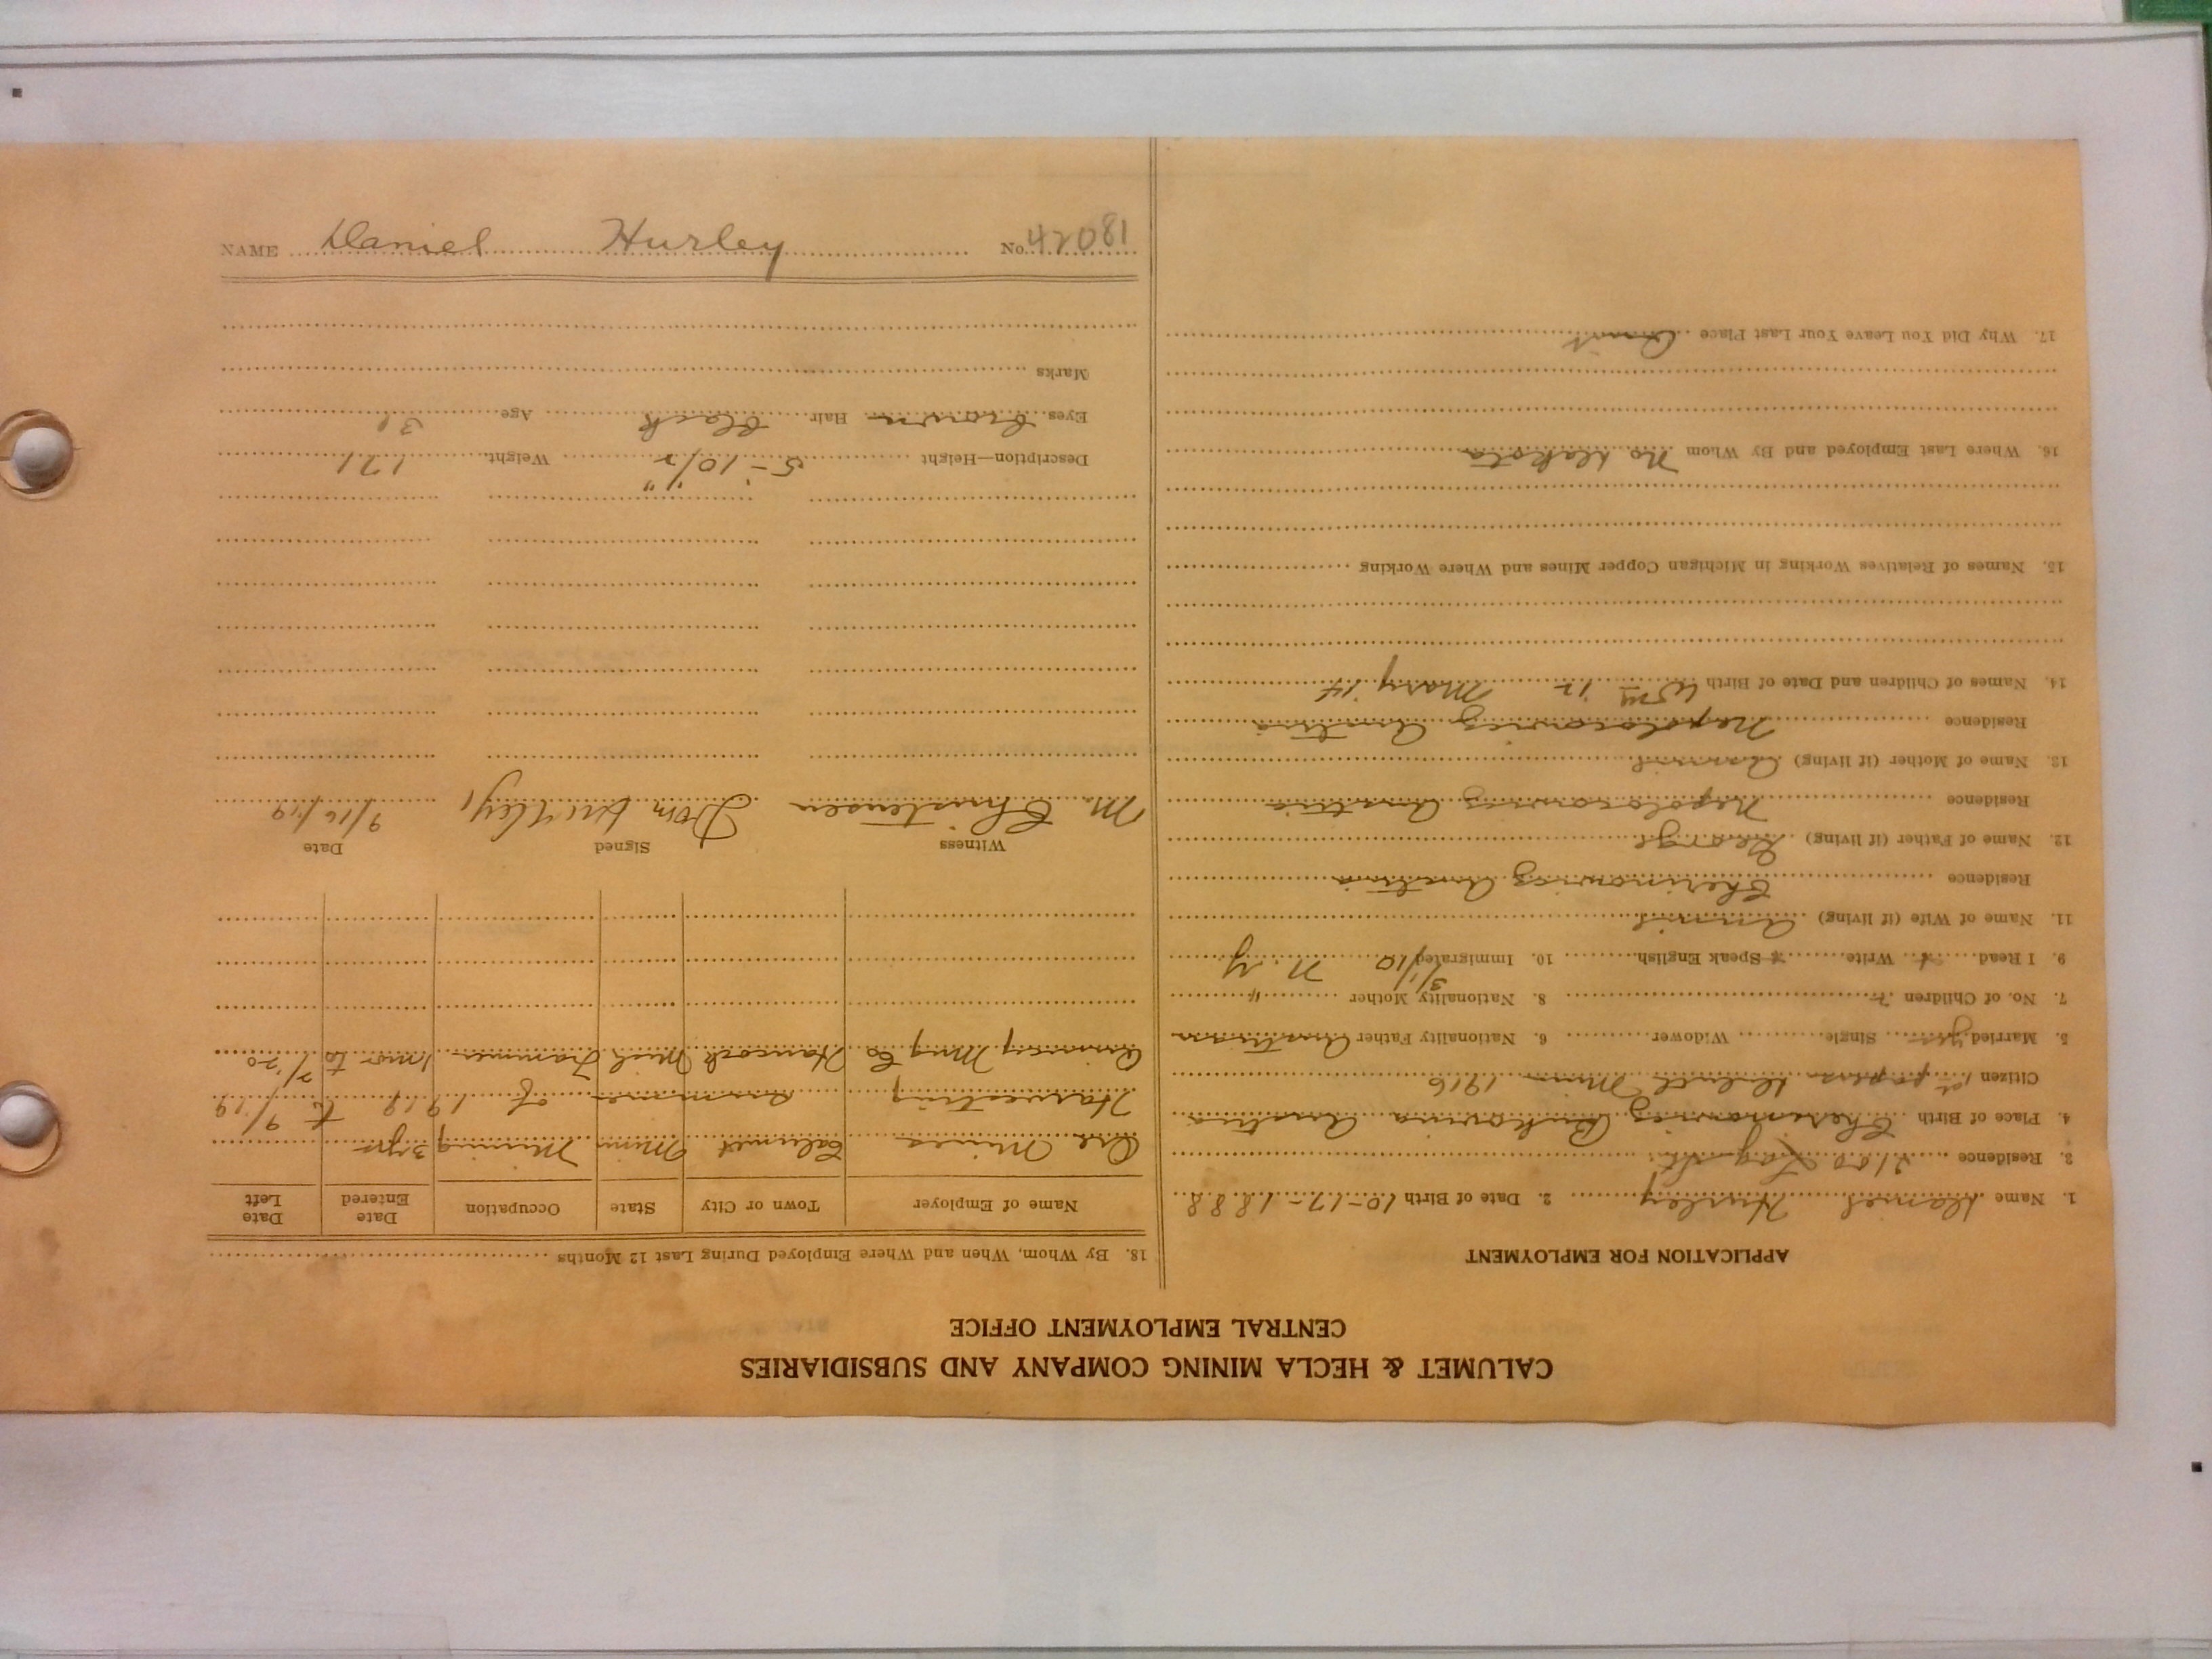 CALUMET & HECLA MINING COMPANY AND SUBSIDIARIES
CENTRAL EMPLOYMENT OFFICE
APPLICATION FOR EMPLOYMENT
1. Name Daniel Hurley 2. Date of Birth 10-17-1888
3. Residence 2100 St.
4. Place of Birth Bukovina Austria
Citizen 1st papers Duluth Minn 1916
5. Married yes Single Widower 6. Nationality Father Austrian
7. No. of Children 2 8. Nationality Mother "
9. I Read Write Speak English 10. Immigrated 3/1/10 N.Y
11. Name of Wife (if living) Annie
Residence Austria
12. Name of Father (if living) George
Residence Austria
13. Name of Mother (if living)
Residence Austria
14. Names of Children and Date of Birth Wm 12 Mary 14
15. Names of Relatives Working in Michigan Copper Mines and Where Working
16. Where Last Employed and By Whom No. Dakota
17. Why Did You Leave Your Last Place Quit
18. By Whom, When and Where Employed During Last 12 Months
Name of Employer Town or City State Occupation Date Entered Date Left
Ore Mines Calumet Minn Mining 3 yrs
Harvesting summer of 1919 to 9/19
Quincy Mng Co Hancock Mich Trammer 1 mo to 7/20
Witness Signed Date
M. Christensen Dom Hurley 9/16/19
Description—Height 5'-10 1/2" Weight 171
Eyes brown Hair black Age 31
Marks
NAME Daniel Hurley No. 42081